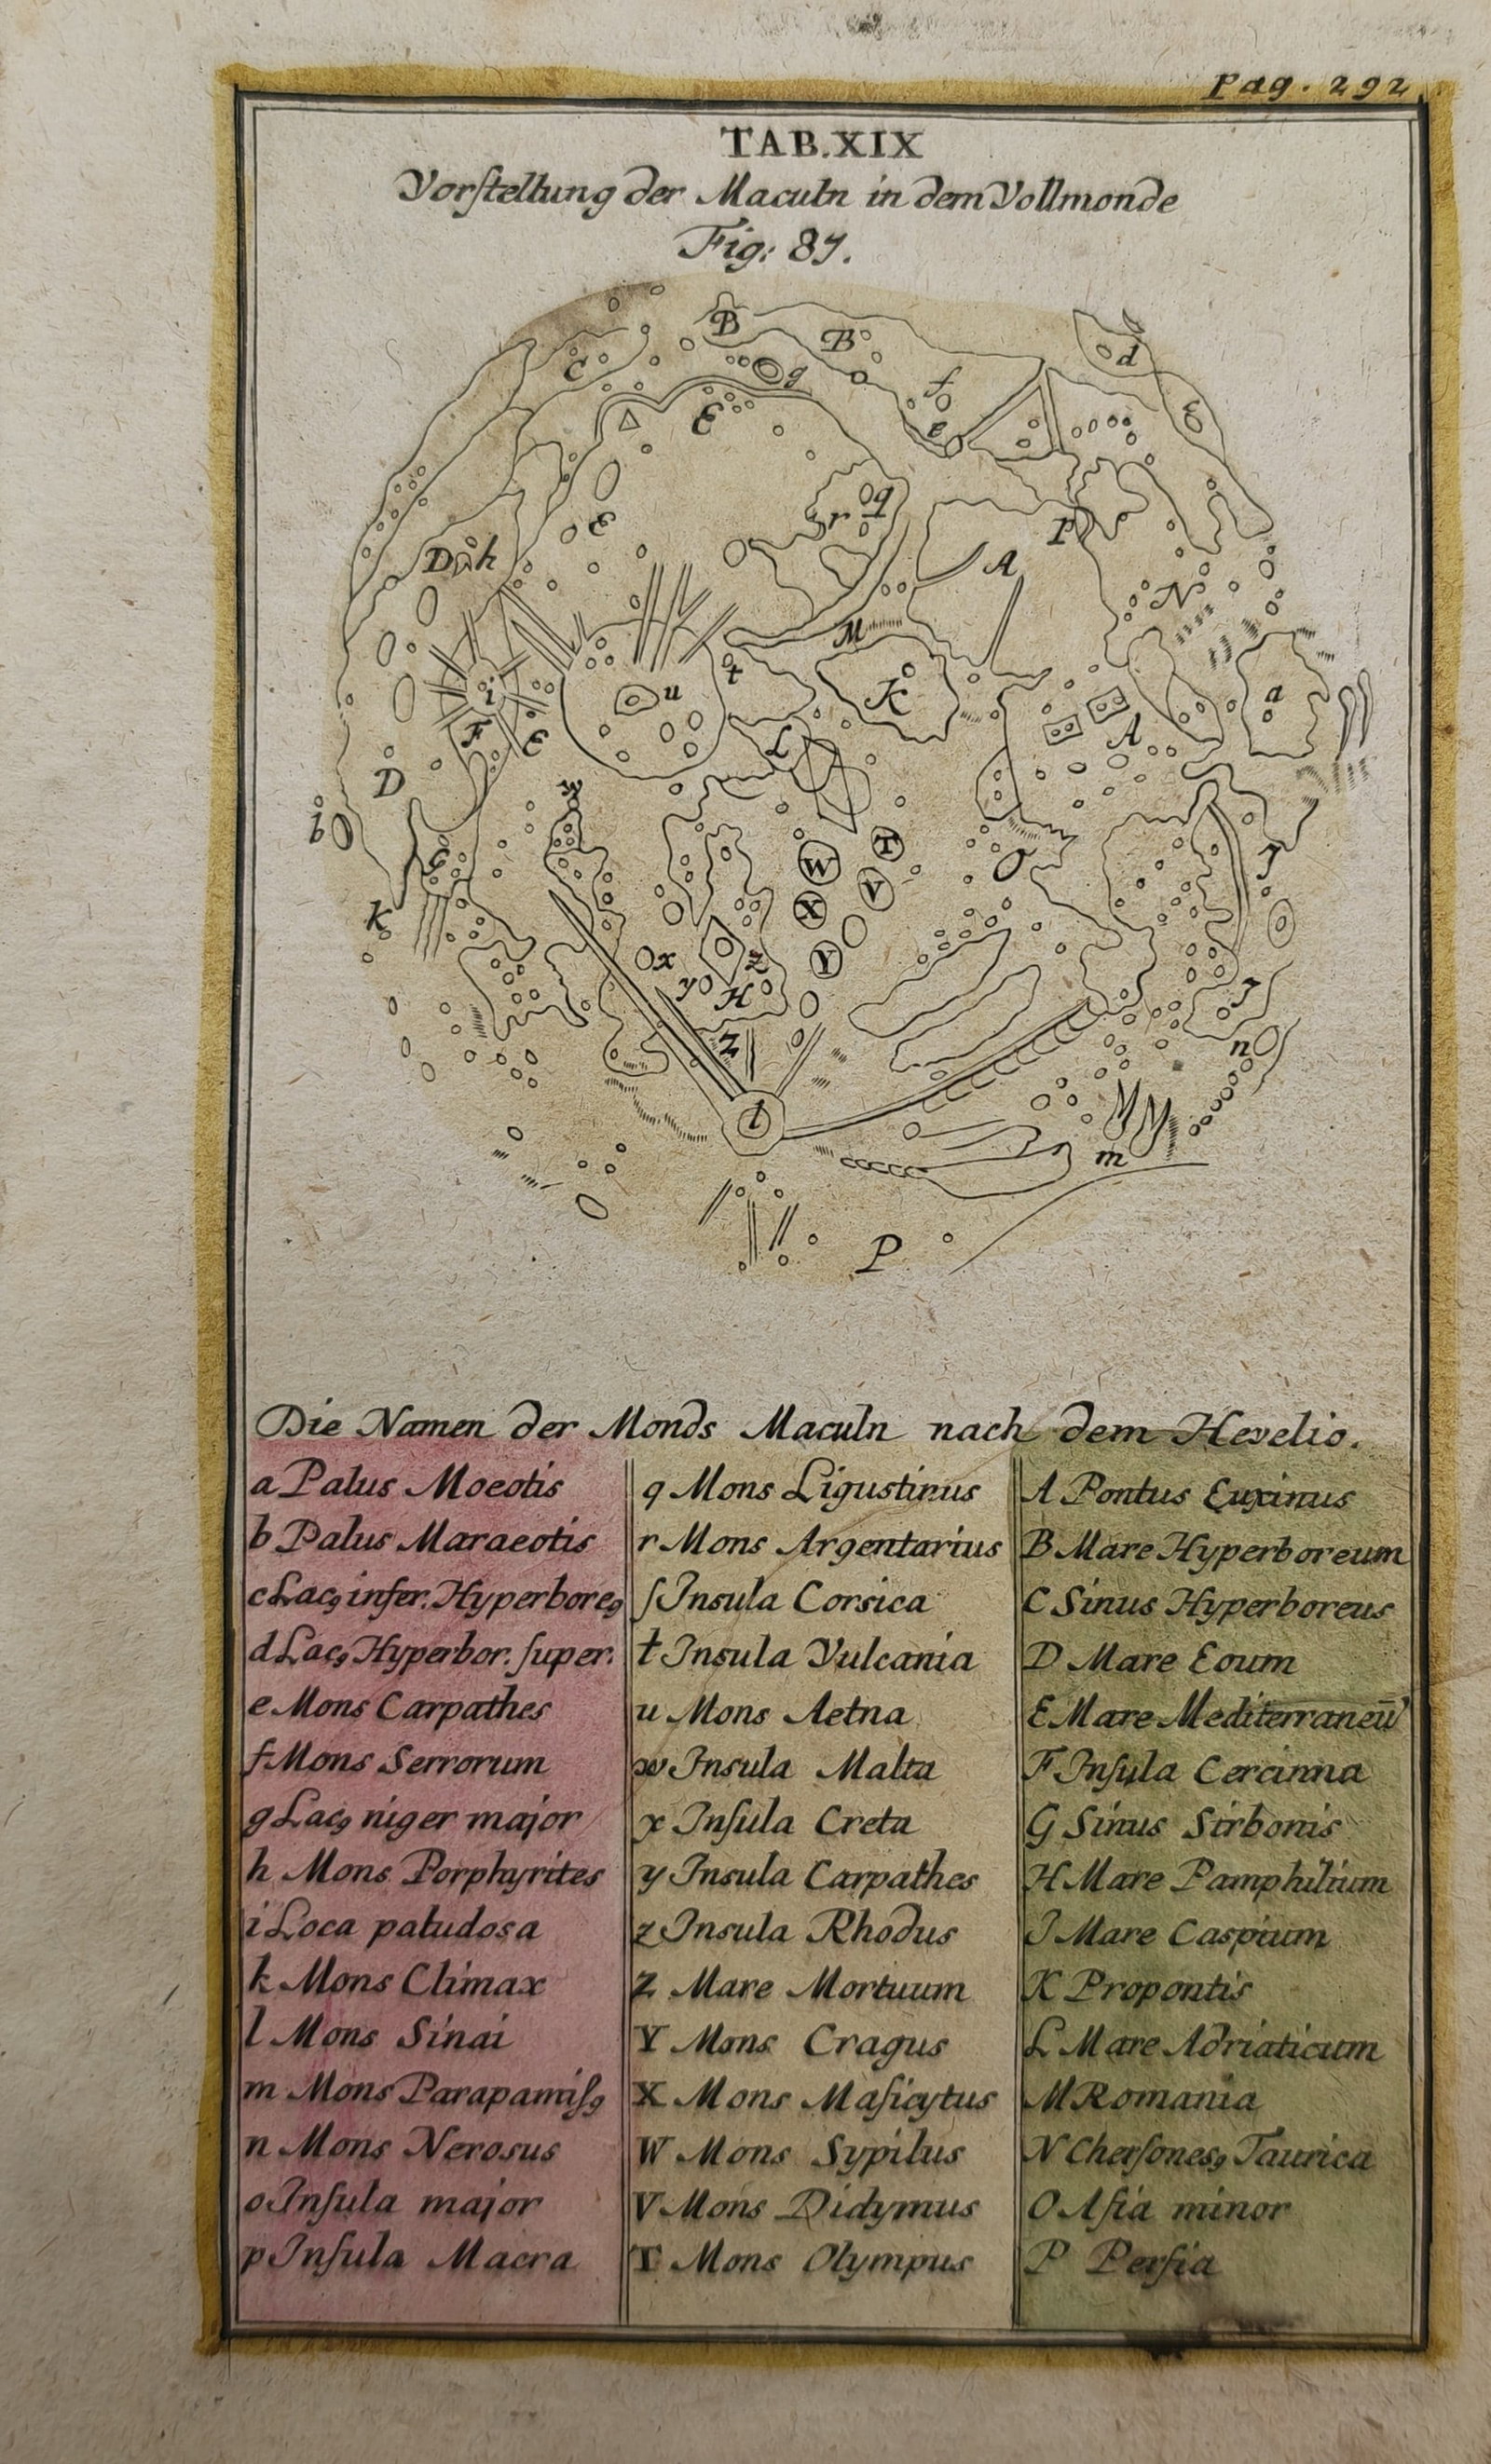 Pag. 292
TAB. XIX
Vorſtellung der Maculn in dem Vollmonde
Fig: 87.
B
B
d
C
g
f
E
e
q
r
E
P
A
D h
N
M
t
i
u
K
a
F
E
L
A
D
w
b
T
W
G
V
O
J
X
k
x
z
Y
y
H
J
Z
n
l
m
P
Die Namen der Monds Maculn nach dem Hevelio.
a Palus Moeotis
b Palus Maraeotis
c Lacꝰ infer. Hyperboreꝰ
d Lacꝰ Hyperbor. ſuper.
e Mons Carpathes
f Mons Serrorum
g Lacꝰ niger major
h Mons Porphyrites
i Loca paludosa
k Mons Climax
l Mons Sinai
m Mons Parapamiſꝰ
n Mons Nerosus
o Inſula major
p Inſula Macra
q Mons Ligustinus
r Mons Argentarius
ſ Insula Corsica
t Insula Vulcania
u Mons Aetna
w Insula Malta
x Inſula Creta
y Insula Carpathes
z Insula Rhodus
Z Mare Mortuum
Y Mons Cragus
X Mons Maſicytus
W Mons Sypilus
V Mons Didymus
T Mons Olympus
A Pontus Euxinus
B Mare Hyperboreum
C Sinus Hyperboreus
D Mare Eoum
E Mare Mediterraneū
F Inſula Cercinna
G Sinus Sirbonis
H Mare Pamphilium
J Mare Caspium
K Propontis
L Mare Adriaticum
M Romania
N Cherſonesꝰ Taurica
O Aſia minor
P Perſia